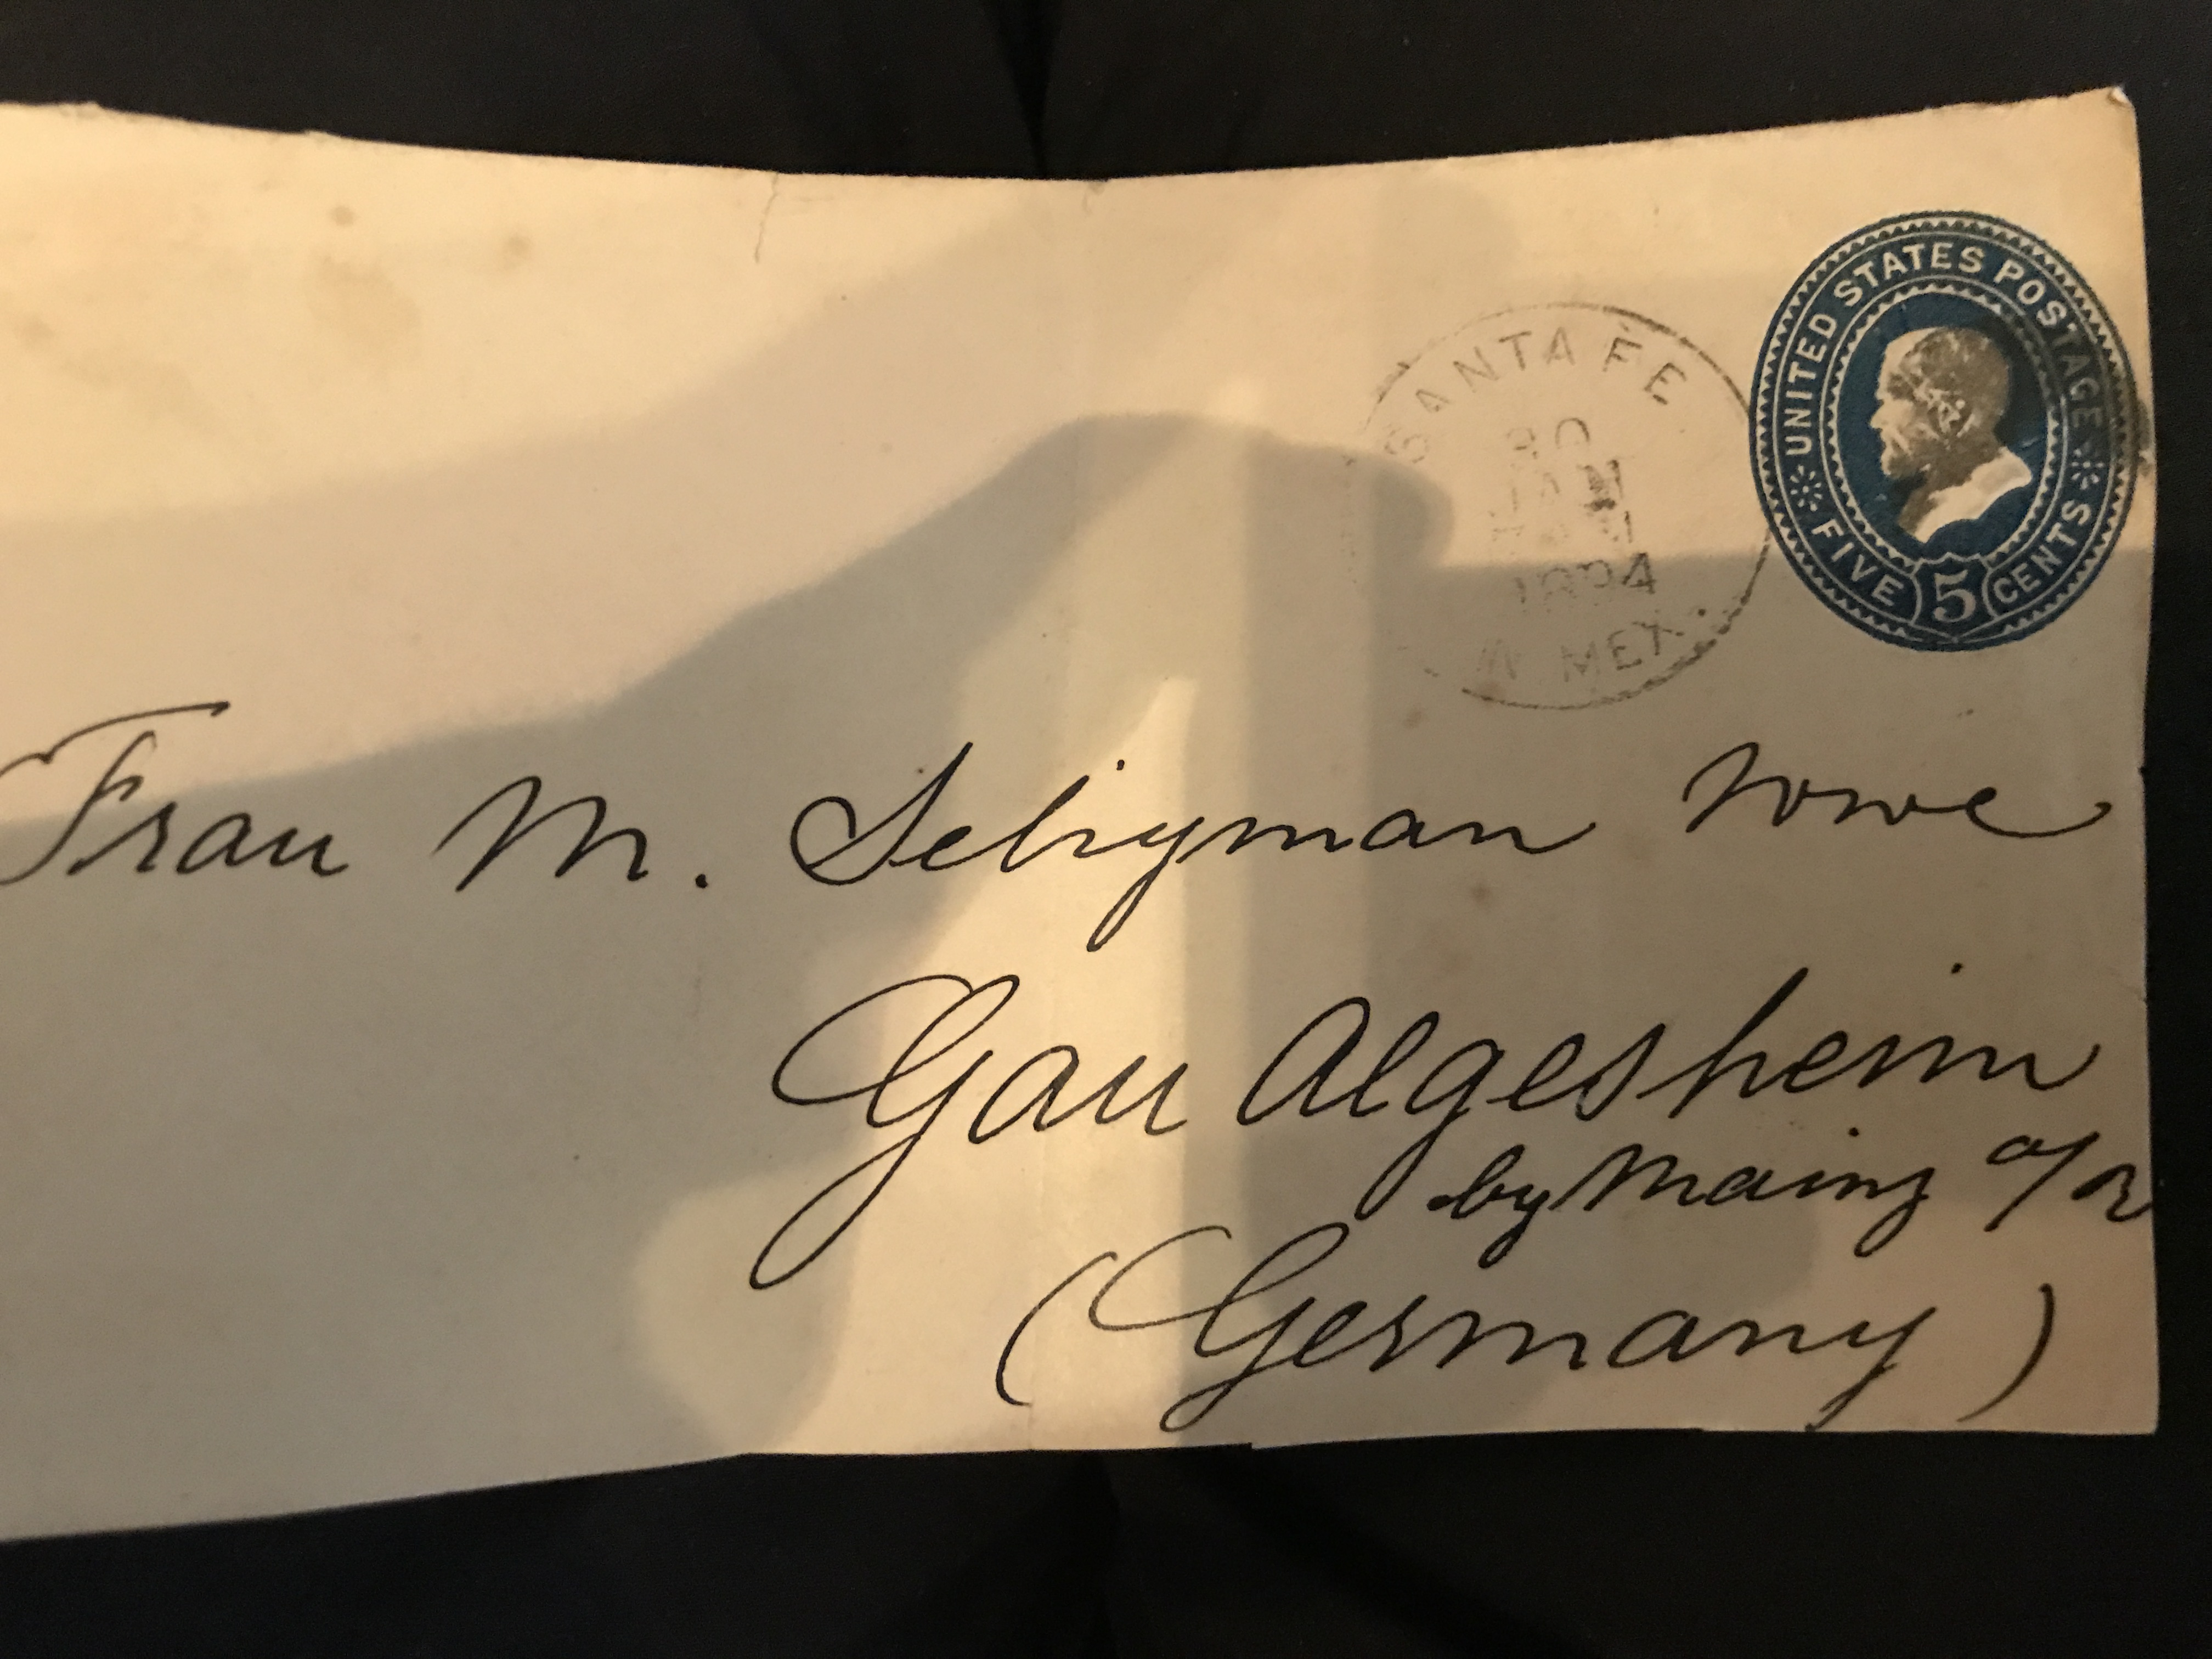 UNITED STATES POSTAGE
FIVE 5 CENTS
SANTA FE
JAN
1894
N MEX.
Frau M. Seligman Wwe
Gau Algesheim
by Mainz a/R
(Germany)